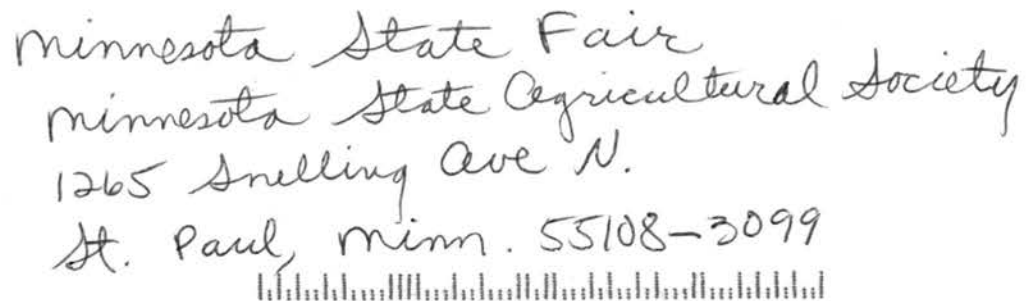 Minnesota State Fair
Minnesota State Agricultural Society
1265 Snelling Ave N.
St. Paul, Minn. 55108-3099